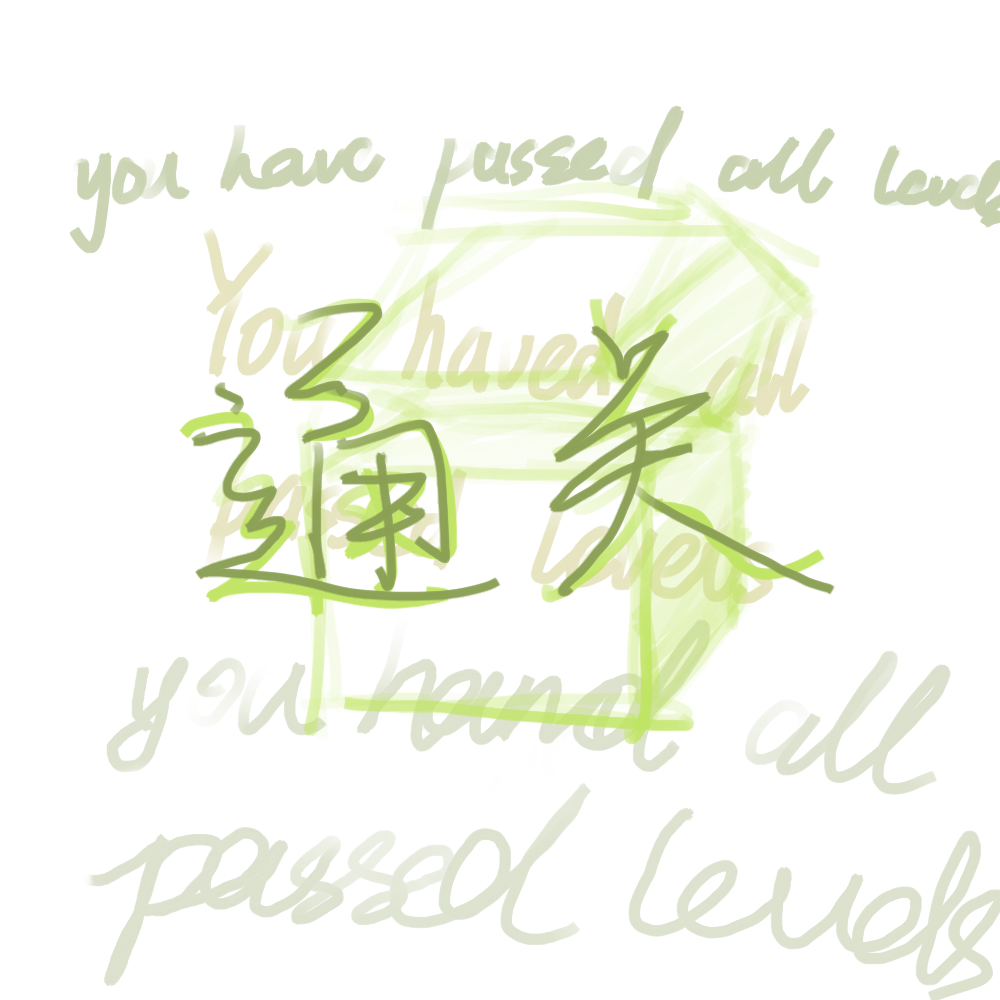 you have passed all levels
You haved all
通关
passed levels
you hand all
passed levels